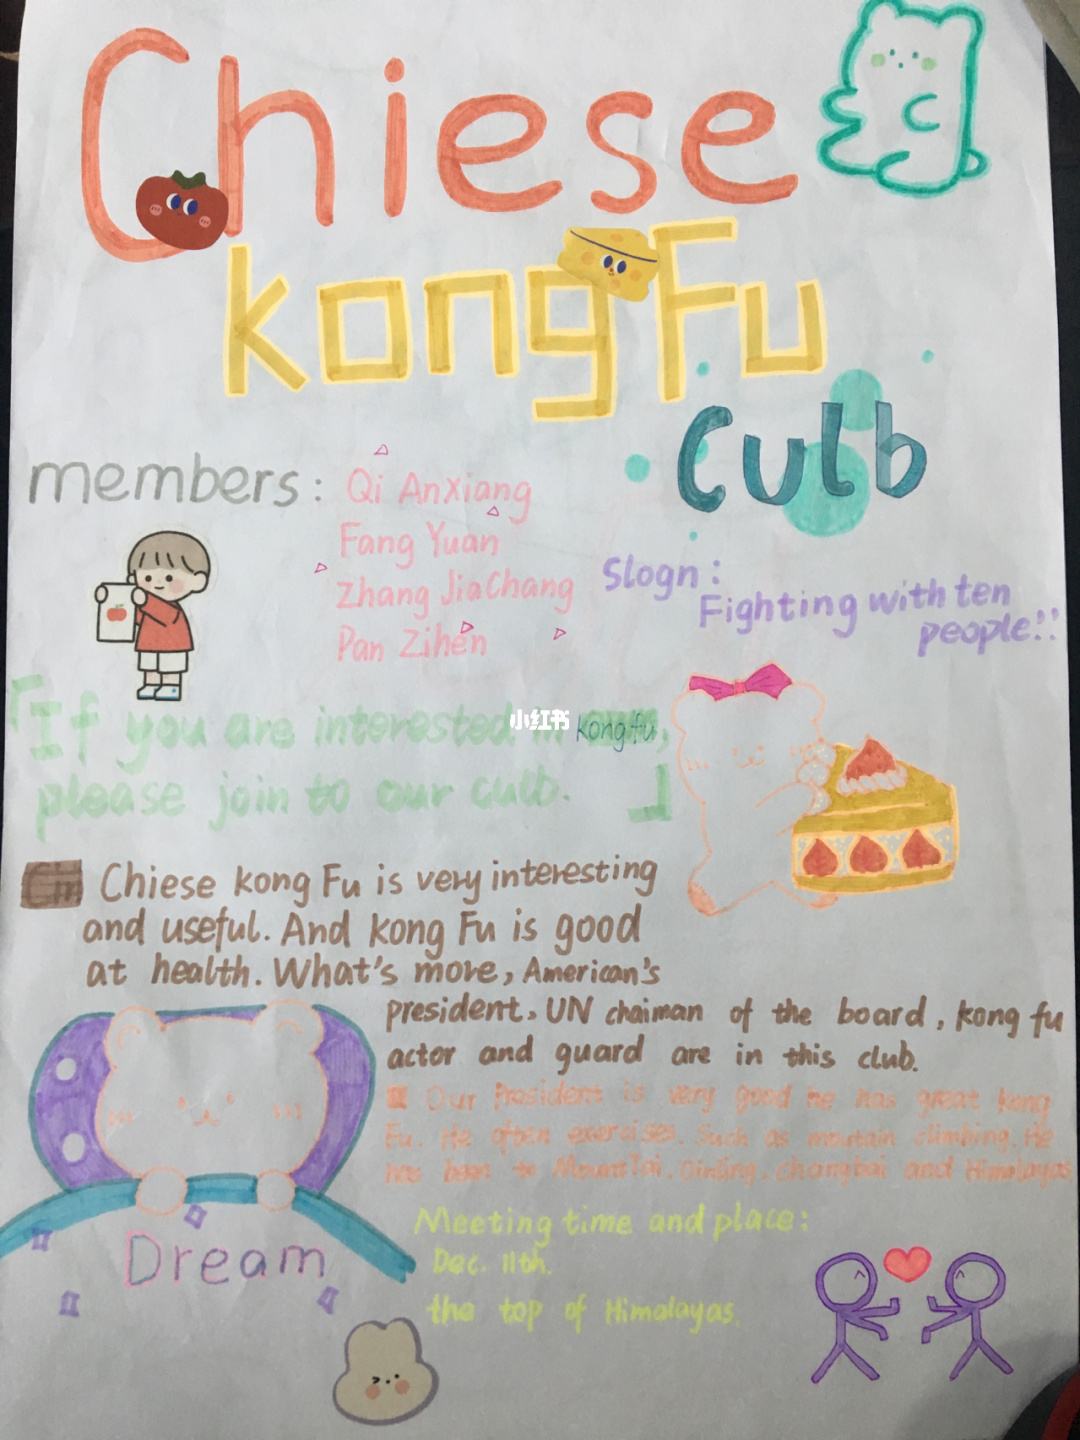 Chiese
kongFu
Culb
members:
Qi AnXiang
Fang Yuan
Zhang JiaChang
Pan Zihen
Slogn:
Fighting with ten
people!!
「If you are interested in kongfu,
please join to our culb. 」
小红书
Chiese kong Fu is very interesting
and useful. And kong Fu is good
at health. What's more, American's
president, UN chaiman of the board, kong fu
actor and guard are in this club.
Our President is very good he has great kong
Fu. He often exercises. Such as moutain climbing. He
has been to MountTai. Qinling. changbai and Himalayas
Meeting time and place:
Dec. 11th.
the top of Himalayas.
Dream